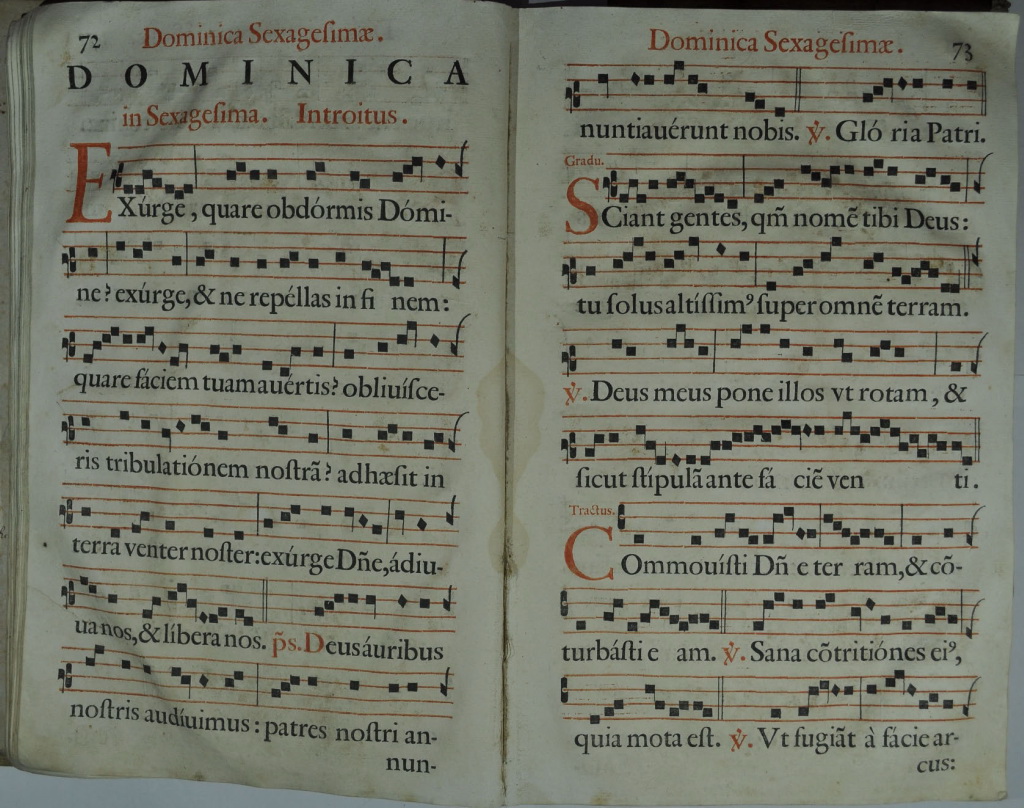 72 Dominica Sexagesimæ.
DOMINICA
in Sexagesima. Introitus.
EXúrge, quare obdórmis Dómi-
ne? exúrge, & ne repéllas in fi nem:
quare fáciem tuam auértis? obliuísce-
ris tribulatiónem nostrã? adhæsit in
terra venter noster: exúrge Dñe, ádiu-
ua nos, & líbera nos. p̃s. Deus áuribus
nostris audíuimus: patres nostri an-
nun-
Dominica Sexagesimæ. 73
nuntiauérunt nobis. ℣. Gló ria Patri.
Gradu.
SCiant gentes, qm̃ nomẽ tibi Deus:
tu solus altíssimꝰ super omnẽ terram.
℣. Deus meus pone illos vt rotam, &
sicut stípulã ante fá ciẽ ven ti.
Tractus.
COmmouísti Dñ e ter ram, & cõ-
turbásti e am. ℣. Sana cõtritiónes eiꝰ,
quia mota est. ℣. Vt fugiãt à fácie ar-
cus: